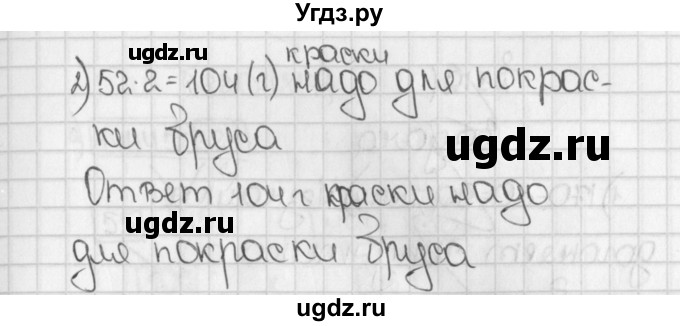 Угдз.ру
краски
2) 52·2=104 (г) надо для покрас-
ugdz.ru
ки бруса
ugdz.ru
Ответ 104 г краски надо
ugdz.ru
для покраски бруса
ugdz.ru
ugdz.ru